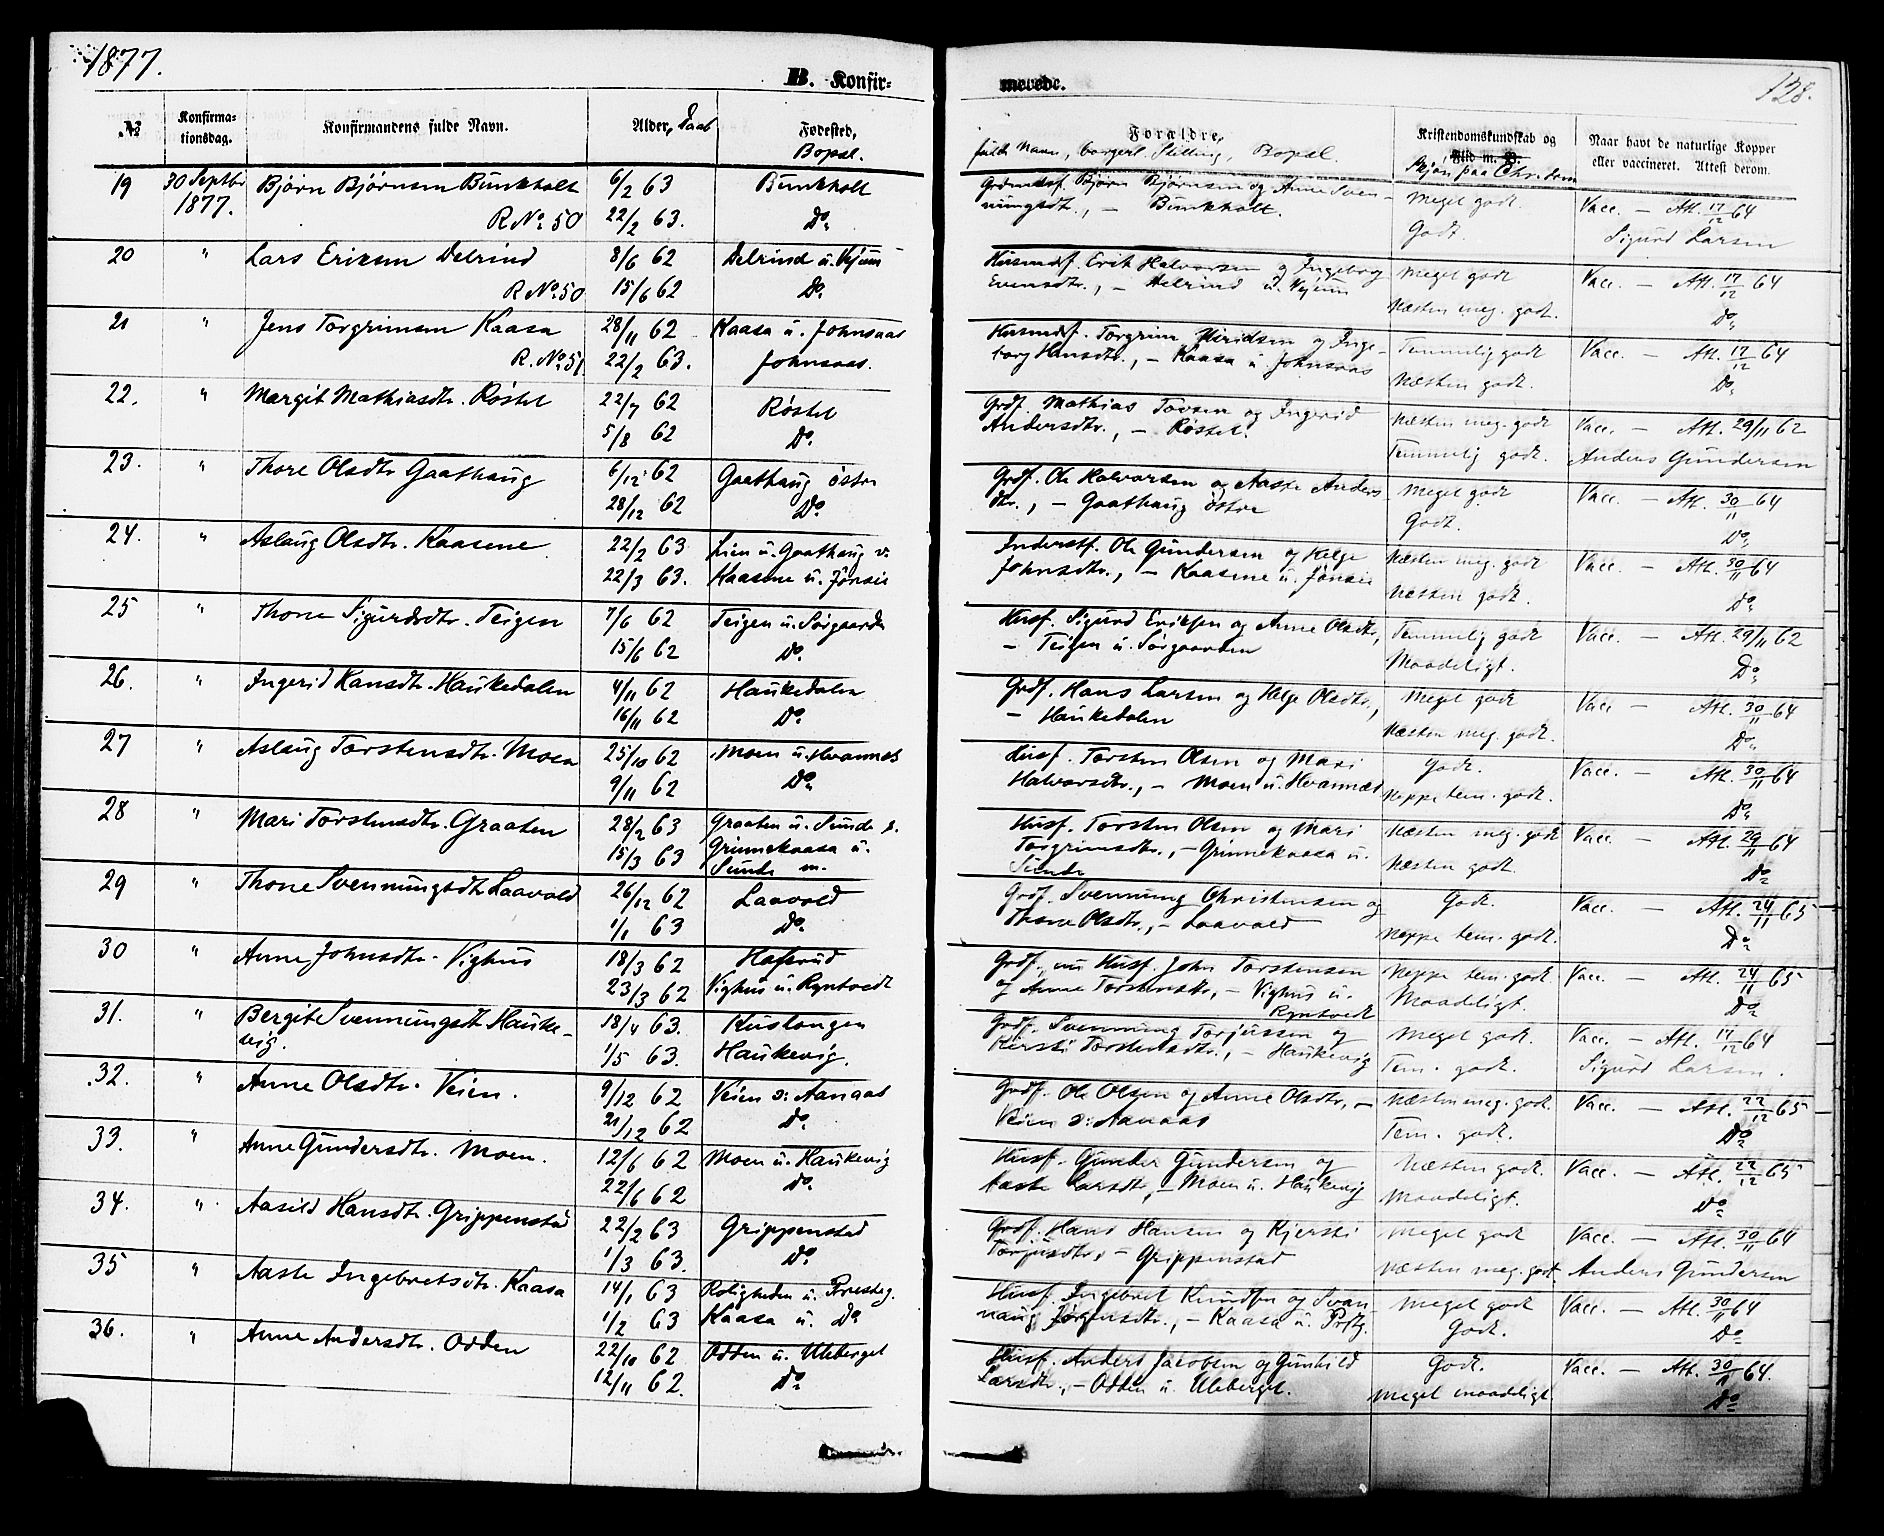 1877.
B. Konfir-
merede.
128.
№
Konfirma-
tionsdag.
Konfirmandens fulde Navn.
Alder, Daab
Fødested,
Bopæl.
Forældre,
fulde Navn, borgerl. Stilling, Bopæl.
Kristendomskundskab og
Flid m. B.
Naar havt de naturlige Kopper
eller vaccineret. Attest derom.
19 30 Septbr Bjørn Bjørnsen Bunkholt 6/2 63 Bunkholt Grdmdsf. Bjørn Bjørnsen og Anne Sven- Meget godt. Vacc. — Att. 17/12 64
1877. R No. 50 22/2 63. Do. nungsdt., — Bunkholt. Godt. Sigurd Larsen
20 " Lars Eriksen Delrind 8/6 62 Delrind u. Vejum Husmdsf. Erik Halvorsen og Ingeborg Meget godt Vacc. — Att. 17/12 64
R No. 50 15/6 62 Do. Evensdtr., — Delrind u. Vejum Næsten meg. godt. Do.
21 " Jens Torgrimsen Kaasa 28/11 62 Kaasa u. Johnsaas Husmdsf. Torgrim og Inge- Temmelig godt Vacc. — Att. 17/12 64
R. No. 51 22/2 63. Johnsaas. borg Hansdtr., — Kaasa u Johnsaas Næsten godt. Do.
22. " Margit Mathiasdtr. Røstel 22/7 62 Røstel Grdf. Mathias Tovsen og Ingerid Næsten meg. godt Vacc. — Att. 29/11 62
5/8 62 Do. Andersdtr., — Røstel. Temmelig godt. Anders Gundersen
23. " Thore Olsdtr Gaathaug 6/12 62 Gaathaug østre Grdf. Ole Halvorsen og Aaste Anders Meget godt Vacc. — Att. 30/11 64
28/12 62 Do. dtr., — Gaathaug østre Godt. Do.
24. " Aslaug Olsdtr. Kaasene 22/2 63 Lien u. Gaathaug v. Inderstf. Ole Gundersen og Helge Næsten meg. godt Vacc. — Att. 30/11 64
22/3 63. Kaasene u. Jønsie Johnsdtr., — Kaasene u. Jønsie Næsten godt. Do.
25 " Thone Sigurdsdtr. Teigen 7/6 62 Teigen u. Sørgaarden Husf. Sigurd Eriksen og Anne Olsdtr, Temmelig godt Vacc. — Att. 29/11 62
15/6 62 Do. — Teigen u. Sørgaarden Maadeligt. Do.
26. " Ingerid Hansdtr. Haukedalen 4/11 62 Haukedalen Grdf. Hans Larsen og Helge Olsdtr., Meget godt Vacc — Att. 30/11 64
16/11 62 Do. — Haukedalen Næsten meg. godt. Do.
27 " Aslaug Torstensdtr. Moen 25/10 62 Moen u. Hvannes Husf. Torsten Olsen og Mari Godt. Vacc. — Att. 30/11 64
9/11 62 Do. Halvorsdtr., — Moen u. Hvannæs Neppe tem. godt. Do.
28 " Mari Torstensdtr. Graaten 28/2 63 Graaten u. Sunde Husf. Torsten Olsen og Mari Næsten meg. godt Vacc. — Att. 29/11 64
15/3 63 Grinnekaasa u. Torgrimsdtr., — Grinnekaasa u. Næsten godt. Do
Sunde m. Sunde
29 " Thone Svennungsdtr Laavold 26/12 62 Laavold Grdf. Svennung Christensen og Godt. Vacc. — Att. 24/11 65
1/1 63 Do. Thone Olsdtr., — Laavold Neppe tem. godt. Do
30 " Anne Johnsdtr. Vighus 18/3 62 Hafsrud Grdf. nu Husf. John Torstensen Neppe tem. godt Vacc. — Att. 24/11 65
23/3 62 Vighus u. Ryntvedt og Anne Torstensdtr., — Vighus u. Maadeligt. Do
Ryntvedt
31. " Bergit Svennungsdtr Hauke- 18/4 63. Kuslongen Grdf. Svennung Torjussen og Meget godt. Vacc. — Att. 17/12 64
vig. 1/5 63. Haukevig. Kirsti Torstensdtr., — Haukevig Tem. godt. Sigurd Larsen.
32. " Anne Olsdtr. Veien. 9/12 62 Veien ɔ: Aanaas Grdf. Ole Olsen og Anne Olsdtr., — Næsten meg. godt. Vacc. — Att. 22/12 65
21/12 62 Do. Veien ɔ: Aanaas Tem. godt. Do
33. " Anne Gundersdtr. Moen. 12/6 62 Moen u. Haukevig Husf. Gunder Gundersen og Næsten godt. Vacc. — Att. 22/12 65
22/6 62 Do. Aaste Larsdtr, — Moen u. Haukevig Maadeligt. Do
34. " Aasild Hansdtr. Grippenstad 22/2 63 Grippenstad Grdf. Hans Hansen og Kjersti Meget godt Vacc. — Att. 30/11 64
1/3 63. Do. Torjusdtr., — Grippenstad Næsten meg. godt Anders Gundersen
35 " Aaste Ingebretsdtr. Kaasa 14/1 63 Roligheden u. Presteg. Husf. Ingebret Knudsen og Svan- Meget godt Vacc. — Att. 30/11 64
1/2 63 Kaasa u. Do naug Jørgensdtr., — Kaasa u. Prstg. Godt. Do
36. " Anne Andersdtr. Odden 22/10 62 Odden u. Uleberget Husf. Anders Jacobsen og Gunhild Godt. Vacc. — Att. 30/11 64.
12/11 62. Do. Larsdtr., — Odden u. Uleberget. Meget maadeligt. Do